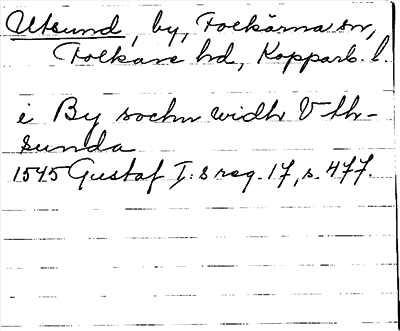 Utsund, by, Folkärna sn,
Folkare hd, Kopparb. l.
i By sochn widh Vth-
sunda
1545 Gustaf I:s reg. 17, s. 477.